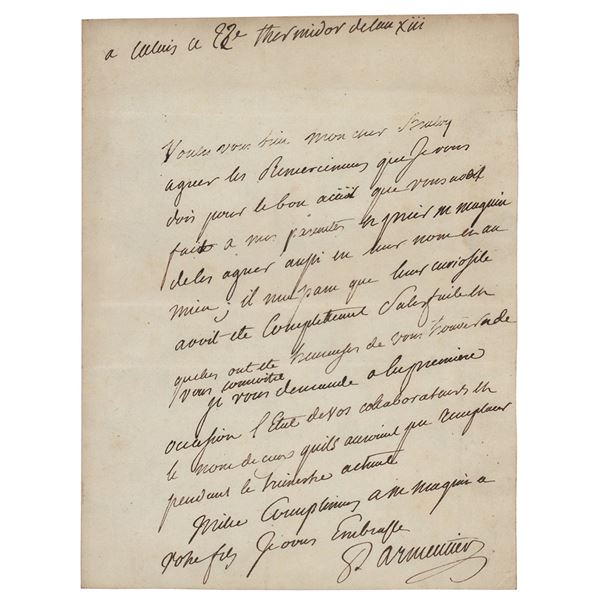 a Calais ce 22e thermidor de lan xiii
Voules vous bien mon cher
agreer les Remerciemens que Je vous
dois pour le bon acueil que vous aves
fait a mes parentes en prier m maquin
de les agreer aussi en leur nom et au
mien; il me paru que leur curiosité
avoit ete Complettement Satisfaite et
quelles ont ete heureuses de vous trouver et de
vous connoitre
Je vous demande a la premiere
occasion l'Etat de vos collaborateurs et
le nom de ceux quils auroient pu remplacer
pendant le trimestre actuel
Mille Complimens a m maquin a
votre fils Je vous Embrasse
Parmentier